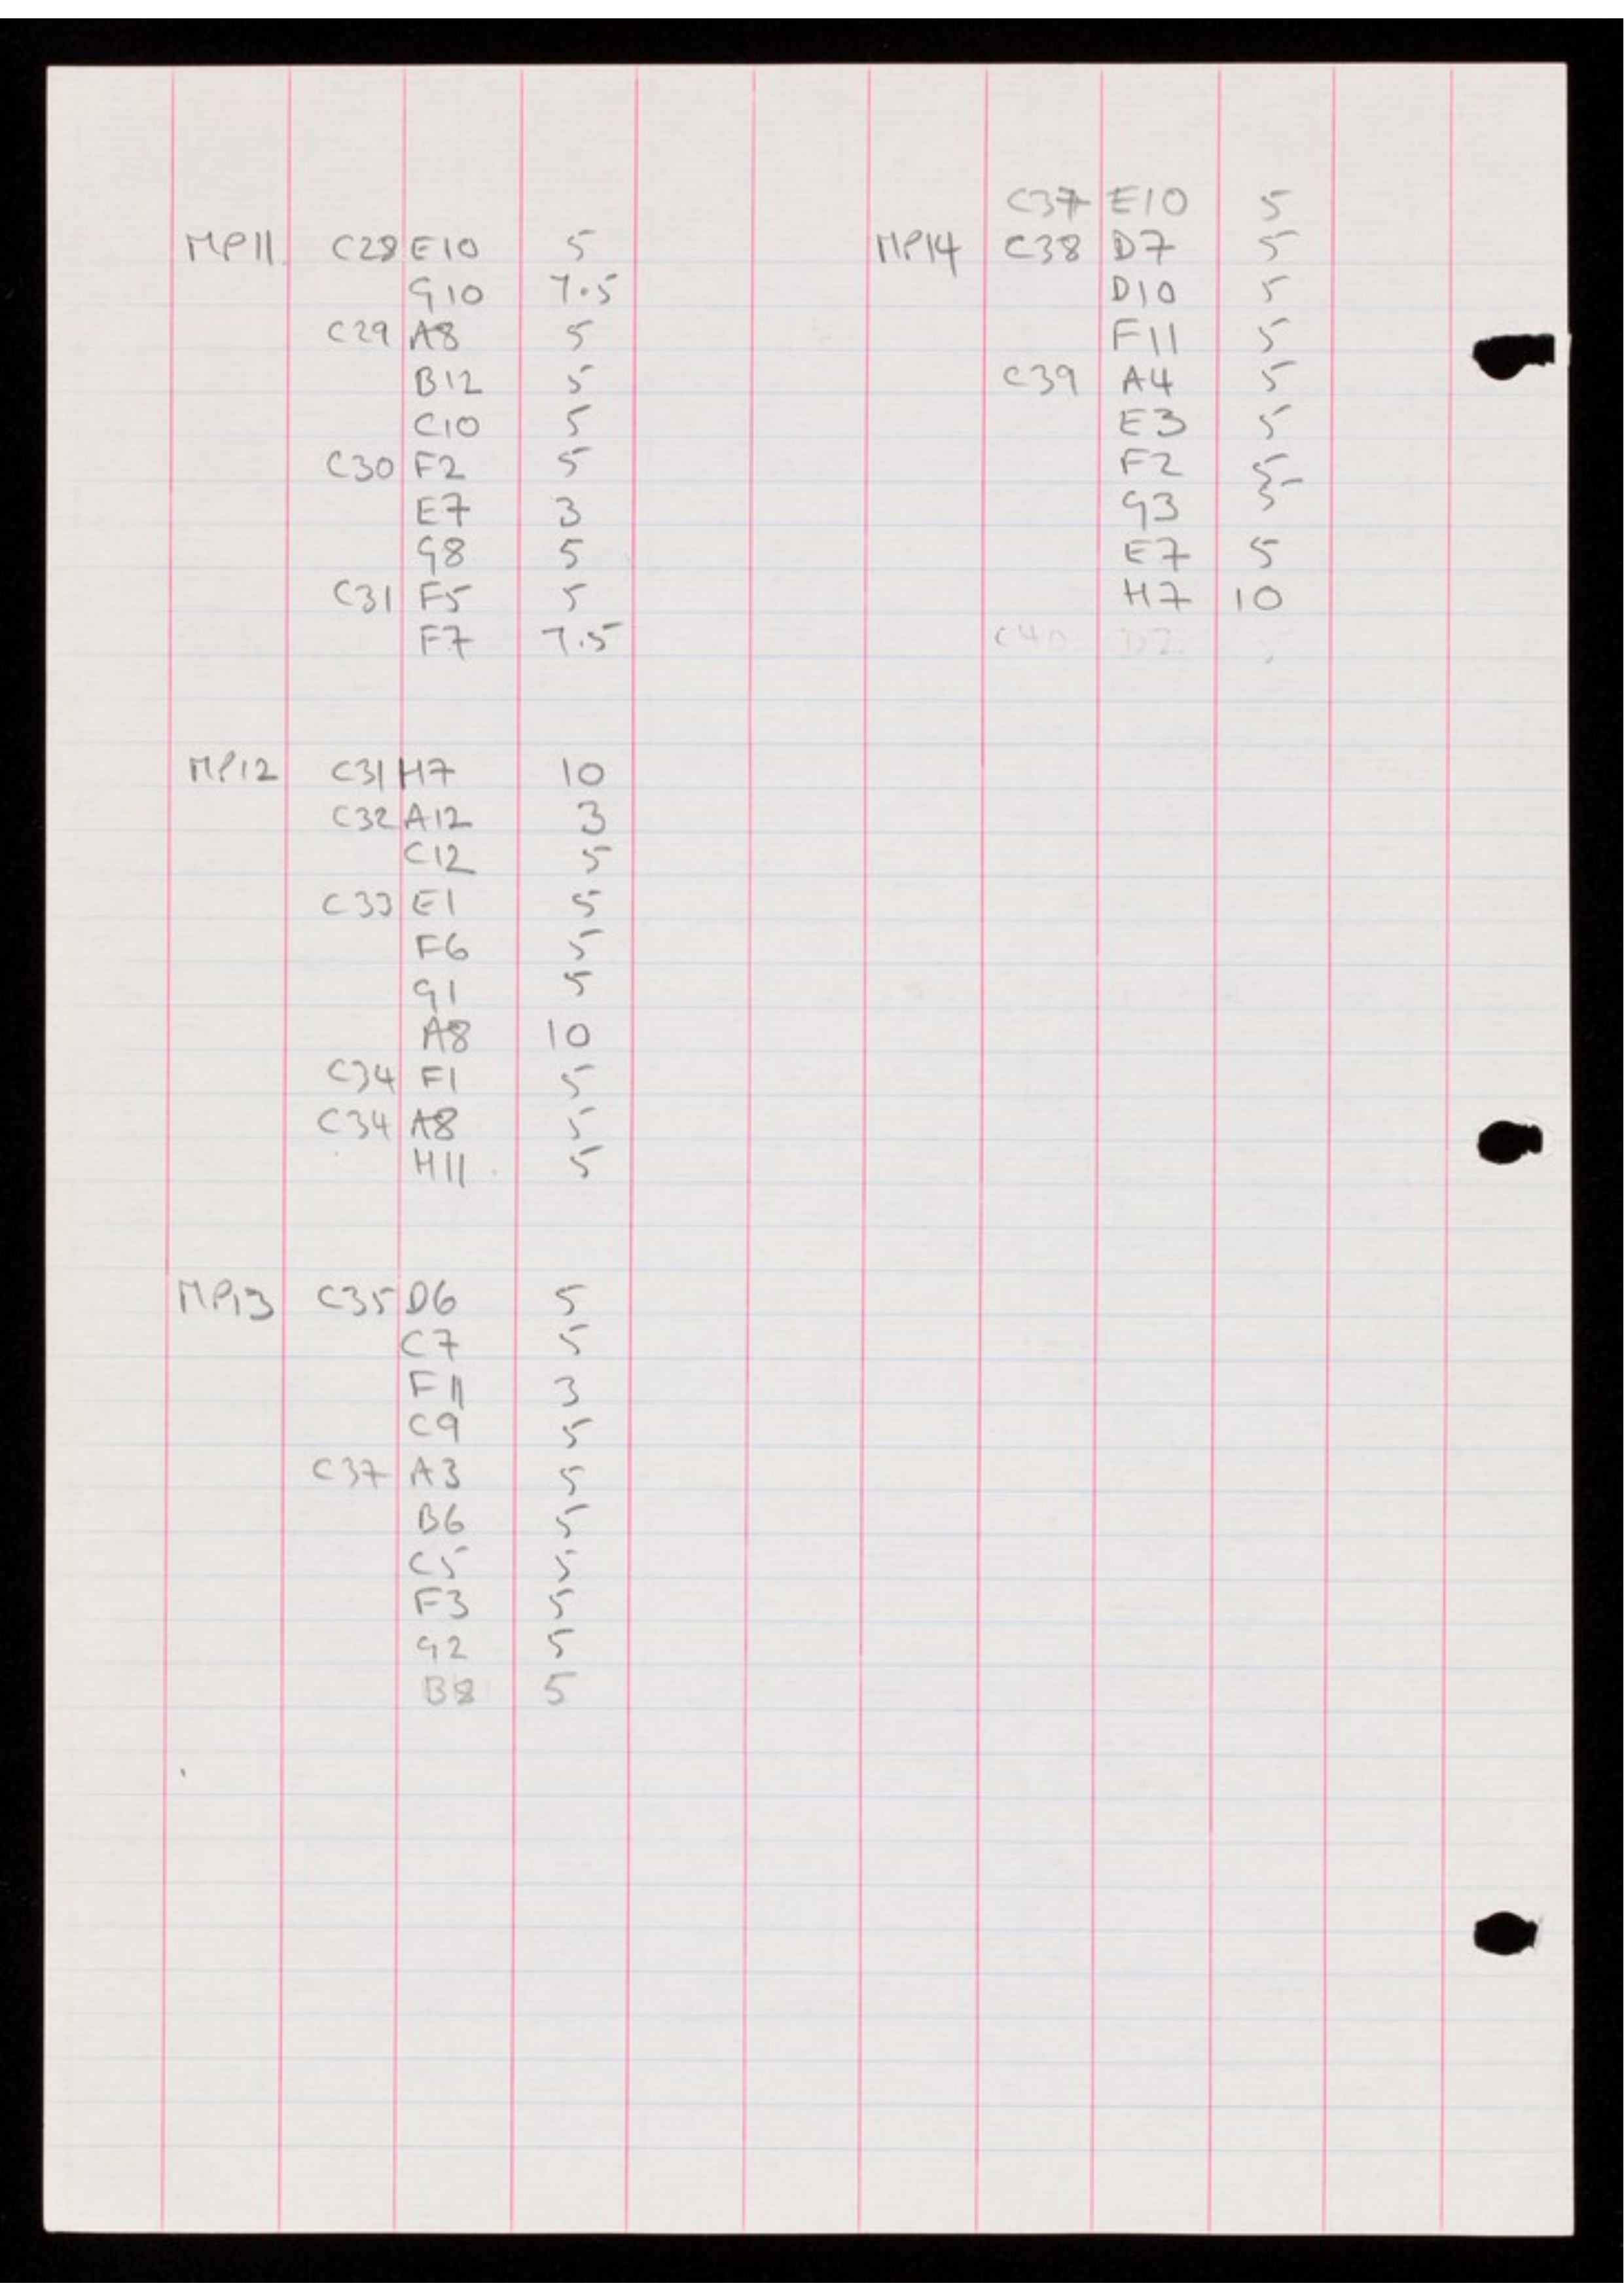 MP11 C28 E10 5
G10 7.5
C29 A8 5
B12 5
C10 5
C30 F2 5
E7 3
G8 5
C31 F5 5
F7 7.5
MP12 C31 H7 10
C32 A12 3
C12 5
C33 E1 5
F6 5
G1 5
A8 10
C34 F1 5
C34 A8 5
H11 5
MP13 C35 D6 5
C7 5
F11 3
C9 5
C37 A3 5
B6 5
C5 5
F3 5
G2 5
B8 5
C37 E10 5
MP14 C38 D7 5
D10 5
F11 5
C39 A4 5
E3 5
F2 5
G3 5
E7 5
H7 10